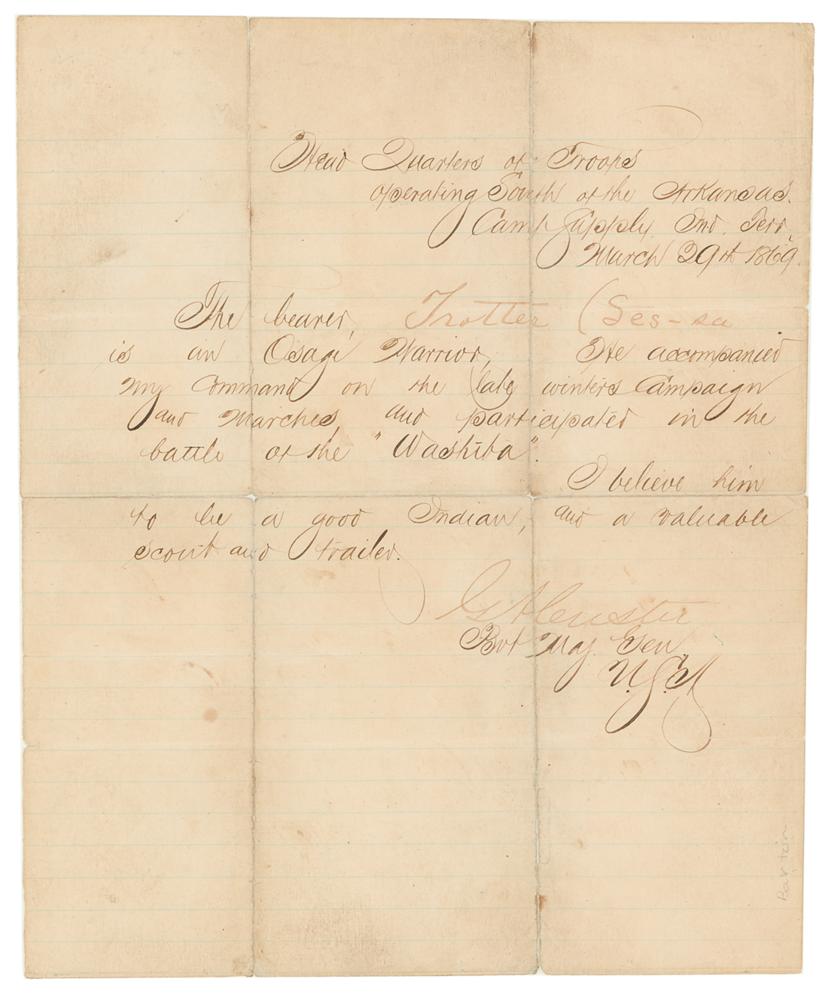 Head Quarters of Troops
operating South of the Arkansas.
Camp Supply. Ind. Terr,
March 29th 1869.
The bearer, Trotter (Ses-sa
is an Osage Warrior, He accompanied
my Command on the late winters Campaign
and Marches, and participated in the
battle of the "Washita".
I believe him
to be a good Indian, and a valuable
scout and trailer.
G A Custer
Bvt Maj. Gen.
U.S.A